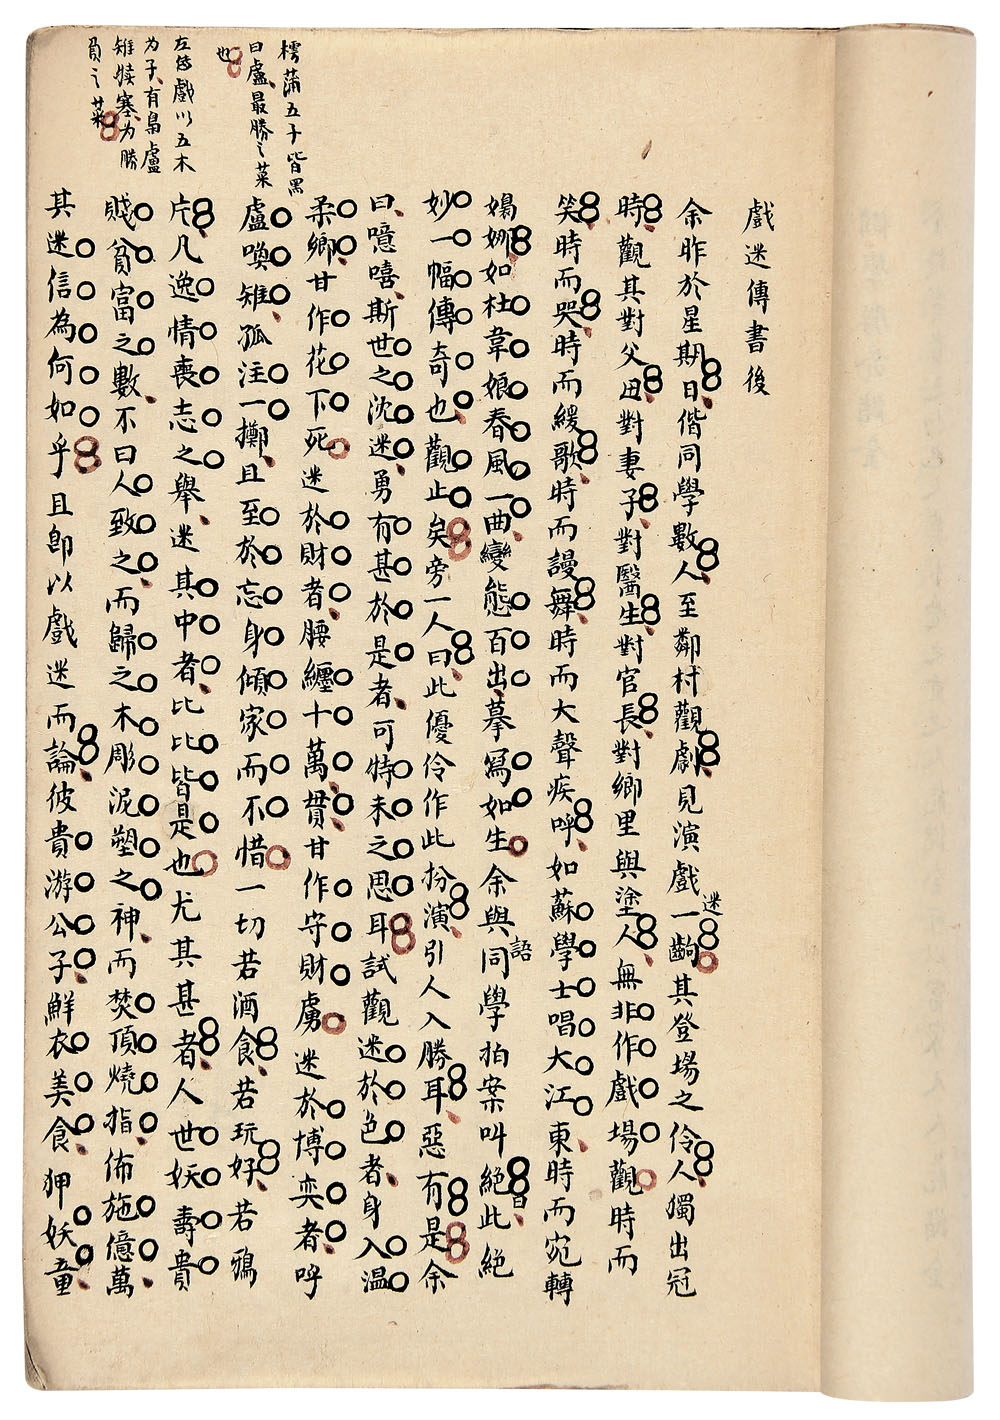 戲迷傳書後
余昨於星期日偕同學數人至鄰村觀劇見演戲迷一齣其登場之伶人獨出冠
時觀其對父母對妻子對醫生對官長對鄉里與塗人無非作戲場觀時而
笑時而哭時而緩歌時而謾舞時而大聲疾呼如蘇學士唱大江東時而宛轉
嫋娜如杜韋娘春風一曲變態百出摹寫如生余與同學語拍案叫絕曰此絕
妙一幅傳奇也觀止矣旁一人曰此優伶作此扮演引人入勝耳惡有是余
曰噫嘻斯世之沈迷勇有甚於是者可特未之思耳試觀迷於色者身入温
柔鄉甘作花下死迷於財者腰纏十萬貫甘作守財虜迷於博奕者呼
盧喚雉孤注一擲且至於忘身傾家而不惜一切若酒食若玩好若鴉
片凡逸情喪志之舉迷其中者比比皆是也尤其甚者人世妖壽貴
賤貧富之數不曰人致之而歸之木彫泥塑之神而焚頂燒指佈施億萬
其迷信為何如乎且即以戲迷而論彼貴游公子鮮衣美食狎妖童
樗蒲五子皆黑
曰盧最勝之菜
也
左傍戲以五木
为子有梟盧
雉犢塞为勝
負之菜